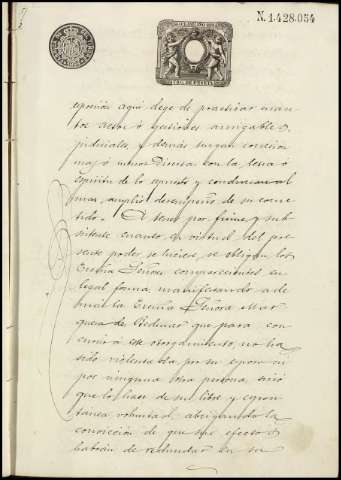 N. 1.428.054
esposición aquí deje de practicar cuan-
tos actos ó gestiones amigables ó
judiciales, y demás tengan conexion
mas ó menos Directa con la letra ó
espíritu de lo espuesto y al
mas amplio desempeño de su come-
tido. A tener por firme y sub-
sistente cuanto en virtud del pre-
sente poder, se hiciere, se obligan los
Excmos Señores comparecientes en
legal forma, manifestando ade-
mas la Excma Señora Mar-
quesa de Bedmar que para con-
currir á este otorgamiento, no ha
sido violentada por su esposo ni
por ninguna otra persona, sinó
que lo hace de su libre y espon-
tanea voluntad, abrigando la
conviccion de que sus efectos
habrán de redundar en su